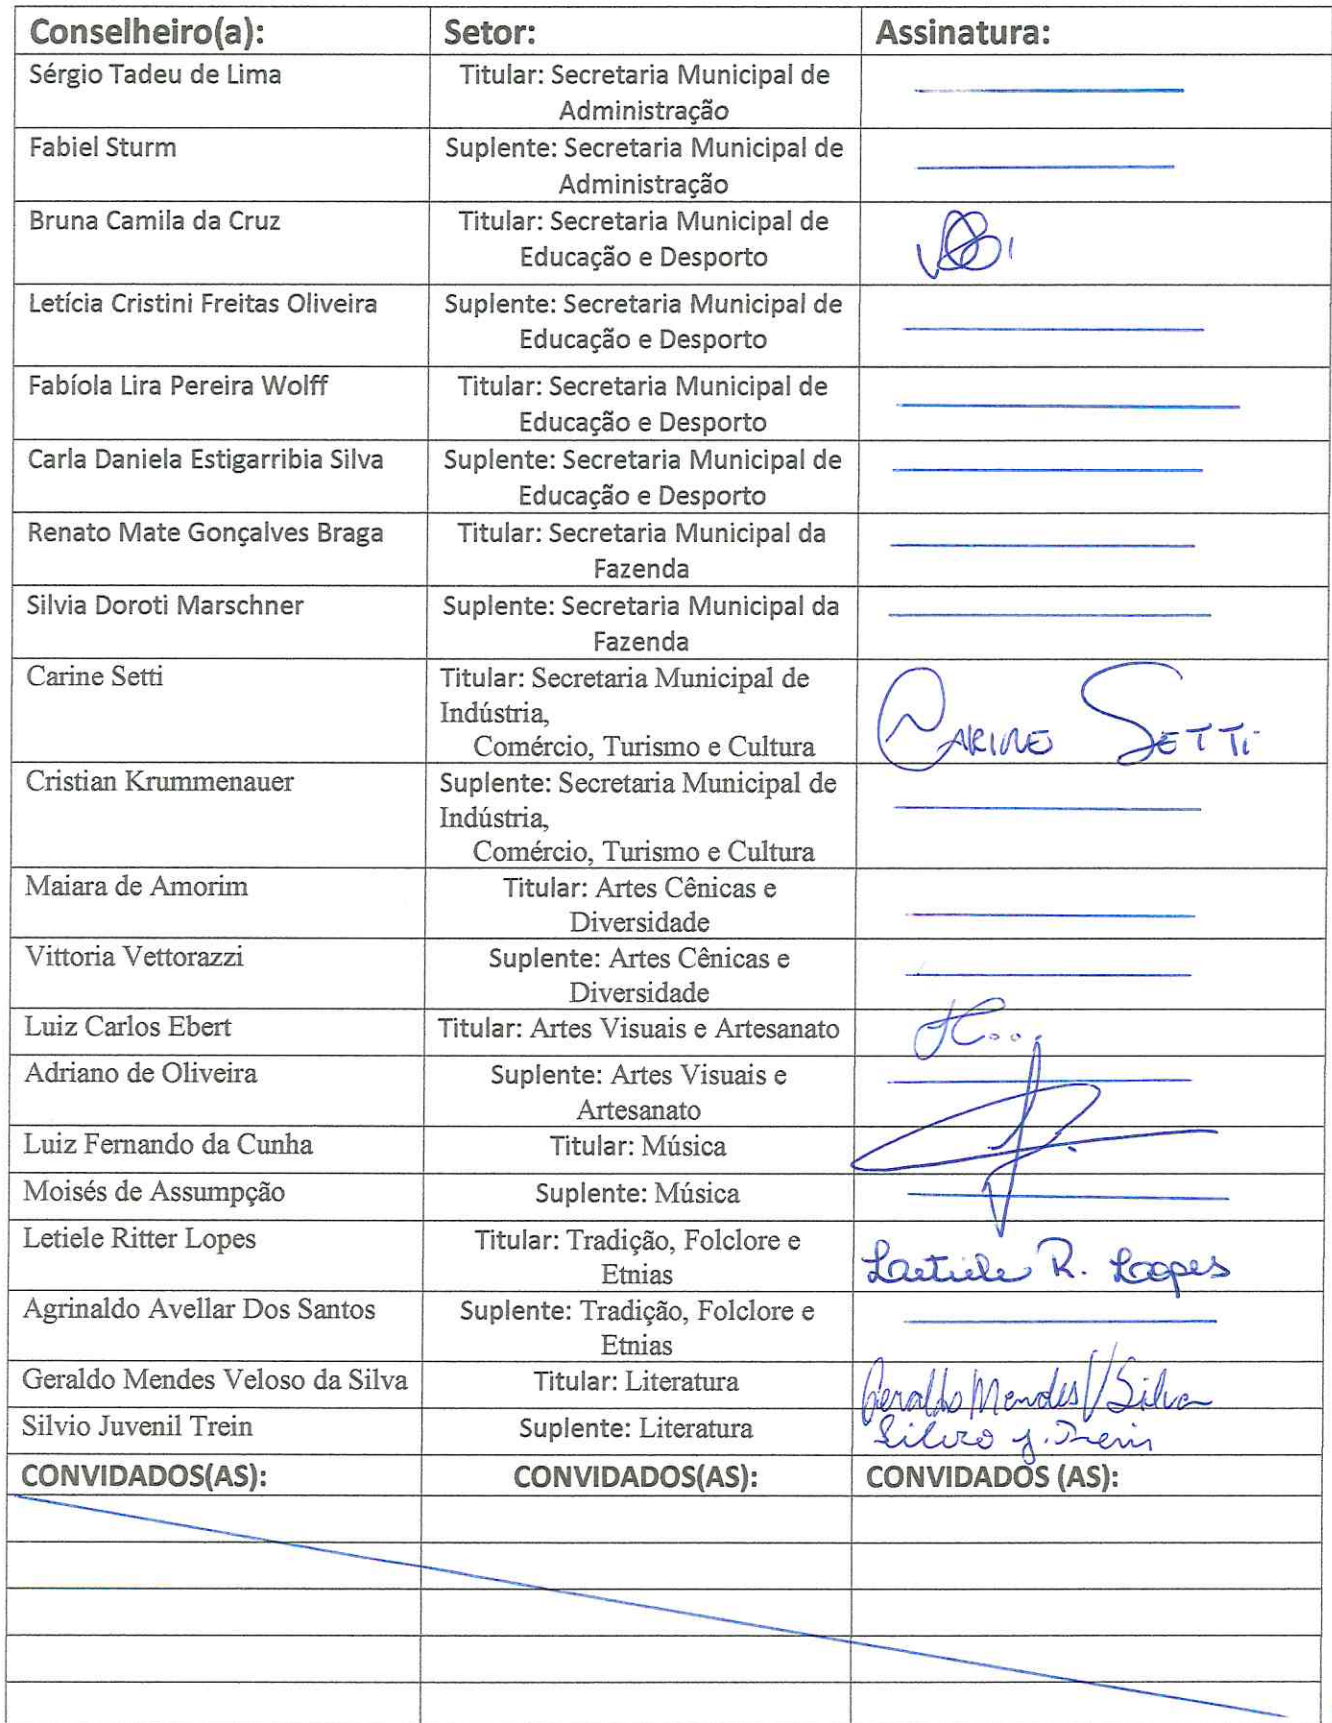 Conselheiro(a): Setor: Assinatura:
Sérgio Tadeu de Lima Titular: Secretaria Municipal de
Administração
Fabiel Sturm Suplente: Secretaria Municipal de
Administração
Bruna Camila da Cruz Titular: Secretaria Municipal de
Educação e Desporto
Letícia Cristini Freitas Oliveira Suplente: Secretaria Municipal de
Educação e Desporto
Fabíola Lira Pereira Wolff Titular: Secretaria Municipal de
Educação e Desporto
Carla Daniela Estigarribia Silva Suplente: Secretaria Municipal de
Educação e Desporto
Renato Mate Gonçalves Braga Titular: Secretaria Municipal da
Fazenda
Silvia Doroti Marschner Suplente: Secretaria Municipal da
Fazenda
Carine Setti Titular: Secretaria Municipal de
Indústria,
Comércio, Turismo e Cultura CARINE SETTI
Cristian Krummenauer Suplente: Secretaria Municipal de
Indústria,
Comércio, Turismo e Cultura
Maiara de Amorim Titular: Artes Cênicas e
Diversidade
Vittoria Vettorazzi Suplente: Artes Cênicas e
Diversidade
Luiz Carlos Ebert Titular: Artes Visuais e Artesanato
Adriano de Oliveira Suplente: Artes Visuais e
Artesanato
Luiz Fernando da Cunha Titular: Música
Moisés de Assumpção Suplente: Música
Letiele Ritter Lopes Titular: Tradição, Folclore e
Etnias R. Lopes
Agrinaldo Avellar Dos Santos Suplente: Tradição, Folclore e
Etnias
Geraldo Mendes Veloso da Silva Titular: Literatura Geraldo Mendes V Silva
Silvio Juvenil Trein Suplente: Literatura Silvio J. Trein
CONVIDADOS(AS): CONVIDADOS(AS): CONVIDADOS (AS):